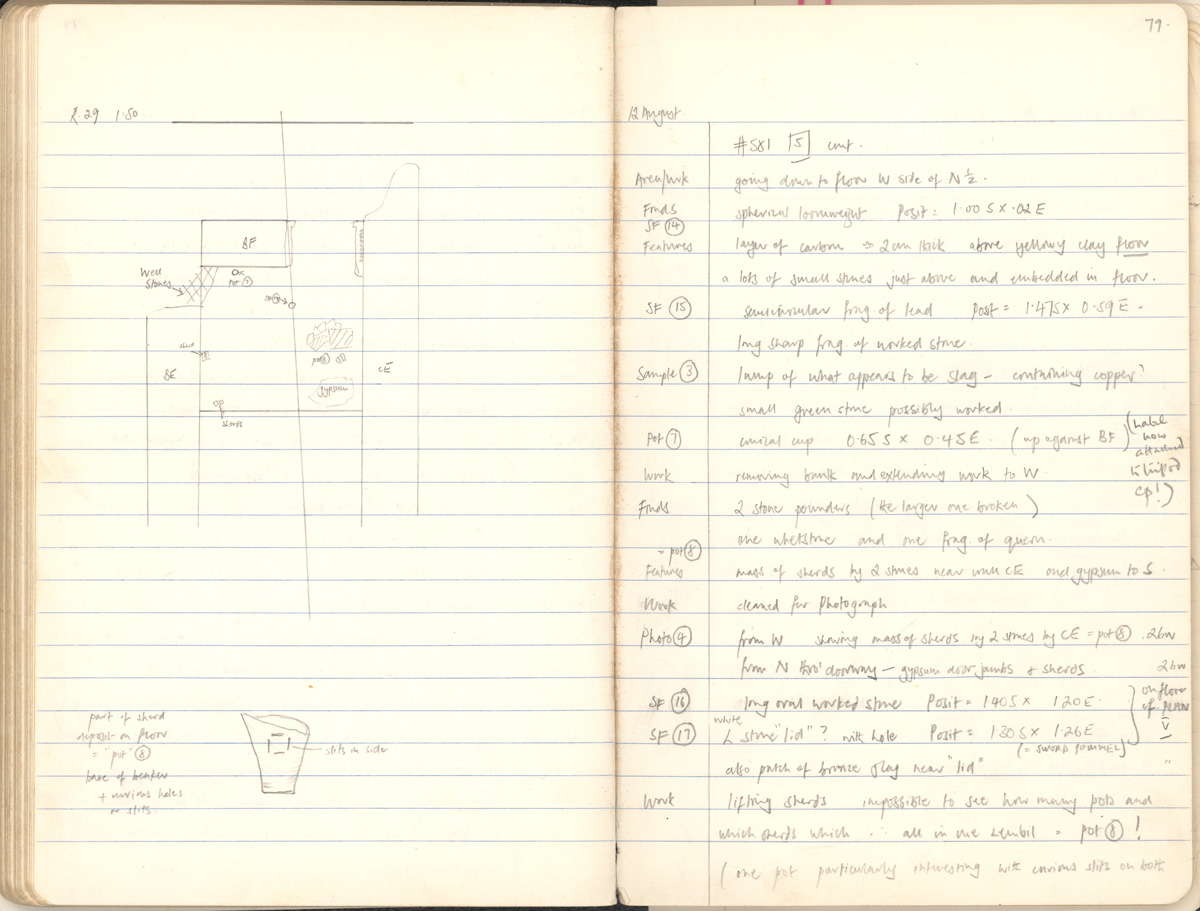 R.29 1:50
BF
Well
Stones
Pot ⑦
sherd
pot⑧
BE
CE
gypsum
sherds
part of sherd
deposit on floor
= "pot" ⑧
base of beaker
+ curious holes
or slits.
slits in side
79.
12 August
#581 [5] cont.
Area/Wrk going down to floor W side of N ½.
Finds spherical loomweight Posit = 1.00 S x .02 E
SF ⑭
Features layer of carbon ≈ 2cm thick above yellowy clay floor
a lots of small stones just above and embedded in floor.
SF ⑮ semicircular frag. of lead Posit = 1.47S x 0.59 E -
long sharp frag of worked stone.
Sample ③ lump of what appears to be slag - containing copper?
small green stone possibly worked.
Pot ⑦ conical cup 0.65 S x 0.45 E. (up against BF)
(Label
now
attached
to tripod
cp!)
Work removing baulk and extending work to W.
Finds 2 stone pounders (the larger one broken)
one whetstone and one frag. of quern.
= pot ⑧
Features mass of sherds by 2 stones near wall CE and gypsum to S.
Work cleaned for Photograph
Photo ④ from W showing mass of sherds by 2 stones by CE = pot ⑧ . 2bw
from N thro' doorway - gypsum door jambs + sherds. 2bw
SF ⑯ long oval worked stone Posit = 1.40 S x 1.20 E.
on floor
of
white
SF ⑰ stone "lid"? with hole Posit = 1.30 S x 1.26 E
(= SWORD POMMEL)
also patch of bronze slag near "lid" "
Work lifting sherds impossible to see how many pots and
which sherds which ∴ all in one zembil = pot ⑧ !
(one pot particularly interesting with curious slits on both